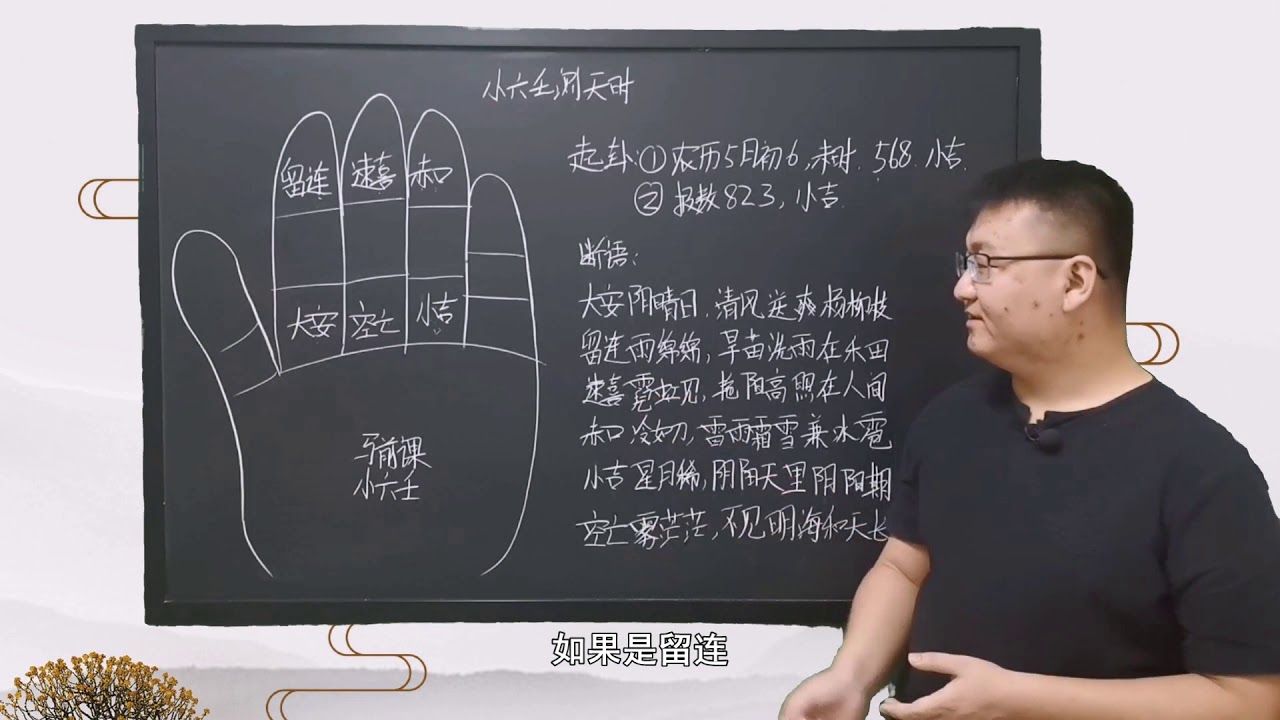 小六壬测天时
留连 速喜 赤口
大安 空亡 小吉
马前课
小六壬
起卦:①农历5月初6,未时.568.小吉.
②报数823,小吉.
断语:
大安阴晴日,清风送爽杨柳枝
留连雨绵绵,旱苗洗雨在禾田
速喜霓虹见,艳阳高照在人间
赤口冷如刀,雷雨霜雪兼冰雹
小吉星月稀,阴阳天里阴阳期
空亡雾茫茫,不见明海和天长
如果是留连